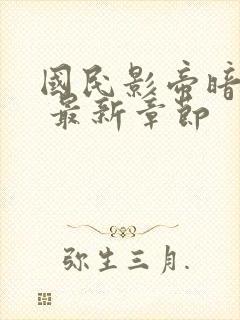 國民影帝暗
最新章節
弥生三月.